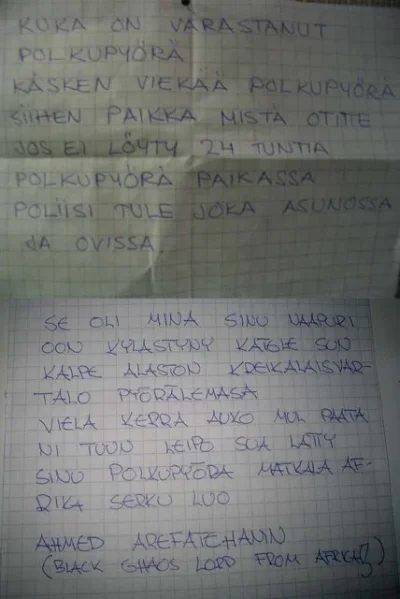 KUKA ON VARASTANUT
POLKUPYÖRÄ
KÄSKEN VIEKÄÄ POLKUPYÖRÄ
SIIHEN PAIKKA MISTÄ OTITTE
JOS EI LÖYTY 24 TUNTIA
POLKUPYÖRÄ PAIKASSA
POLIISI TULE JOKA ASUNOSSA
JA OVISSA.
SE OLI MINA SINU NAAPURI
OON KYLASTYNY KATELE SUN
KALPE ALASTON KREIKALAISVAR-
TALO PYÖRÄLEMASA
VIELA KERRA AUKO MUL PAATA
NI TUUN LEIPO SUA LATTY
SINU POLKUPYÖRA MATKALA AF-
RIKA SERKU LUO
AHMED
(BLACK GHAOS LORD FROM AFRIKA)